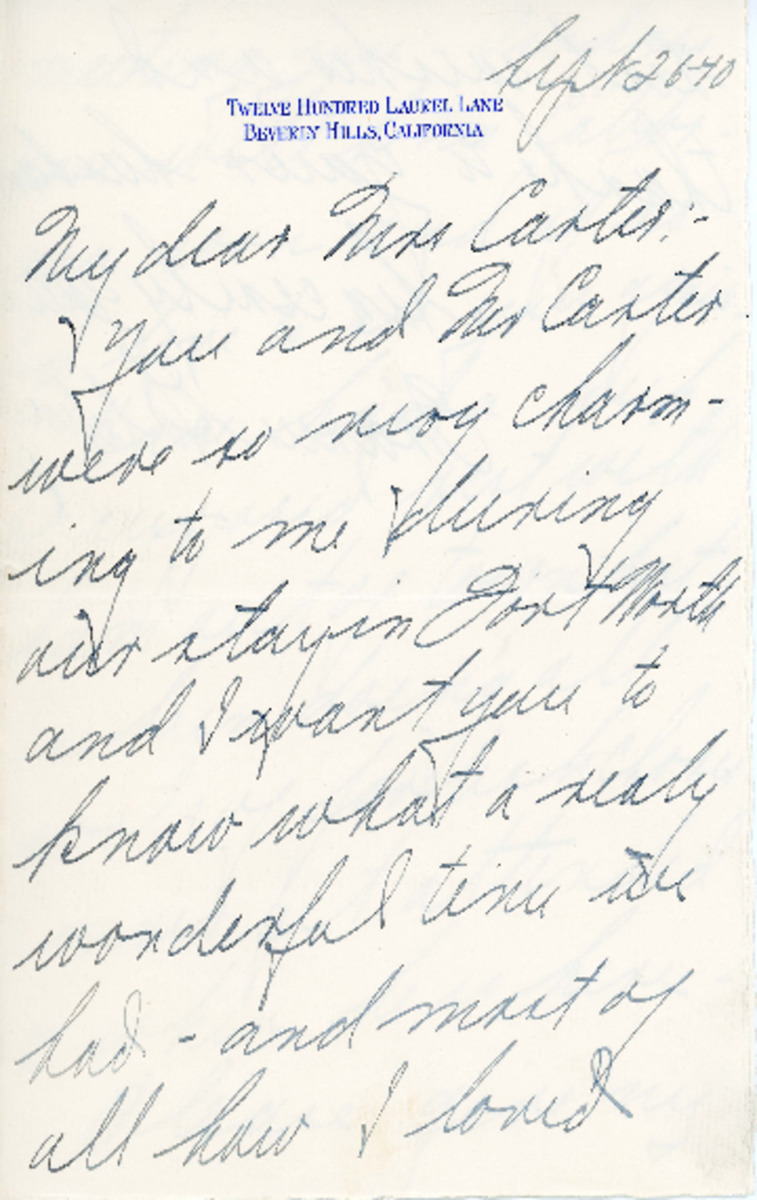 Sept 26-40
TWELVE HUNDRED LAUREL LANE
BEVERLY HILLS, CALIFORNIA
My dear Mrs Carter:-
you and Mr Carter
were so very charm-
ing to me during
our stay in Fort Worth
and I want you to
know what a realy
wonderful time we
had - and most of
all how I loved